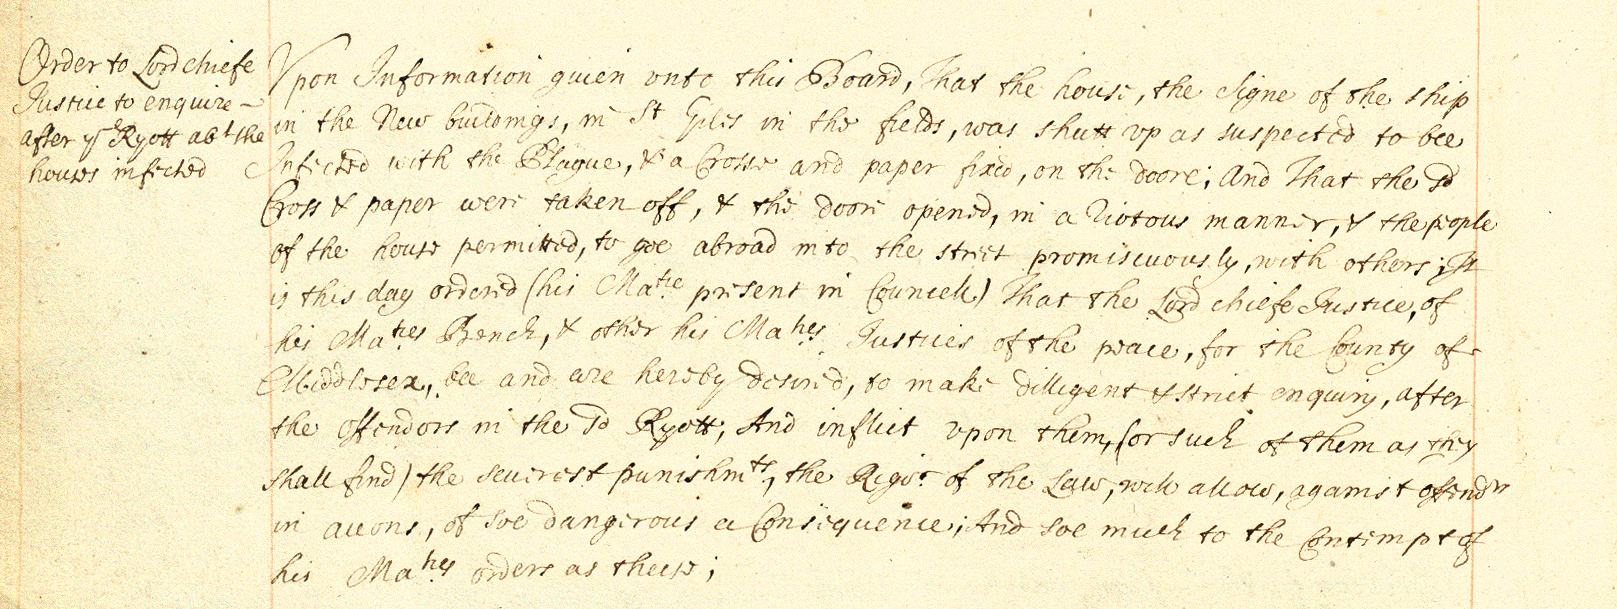 Order to Lord chiefe
Justice to enquire –
after yᵉ Ryott abᵗ the
houses infected
Vpon Information giuen vnto this Board, That the house, the Signe of the ship
in the New buildings, in Sᵗ Gyles in the fields, was shutt vp as suspected to bee
Infected with the Plague, & a Crosse and paper fixed, on the doore; And That the sd
Cross & paper were taken off, & the doore opened, in a riotous manner, & the people
of the house permitted, to goe abroad into the street promiscuously, with others; It
is this day ordered (his Maᵗⁱᵉ present in Councell) That the Lord chiefe Justice, of
his Maᵗⁱᵉˢ Bench, & other his Maᵗⁱᵉˢ Justices of the peace, for the County of
Middlesex, bee and are hereby desired, to make dilligent & strict enquiry, after
the offendors in the sd Ryott, And inflict vpon them, (or such of them as they
shall find) the seuerest punishmᵗˢ, the Rigoʳ of the Law, will allow, against offendʳˢ
in accons, of soe dangerous a Consequence; And soe much to the Contempt of
his Maᵗⁱᵉˢ orders as theise;